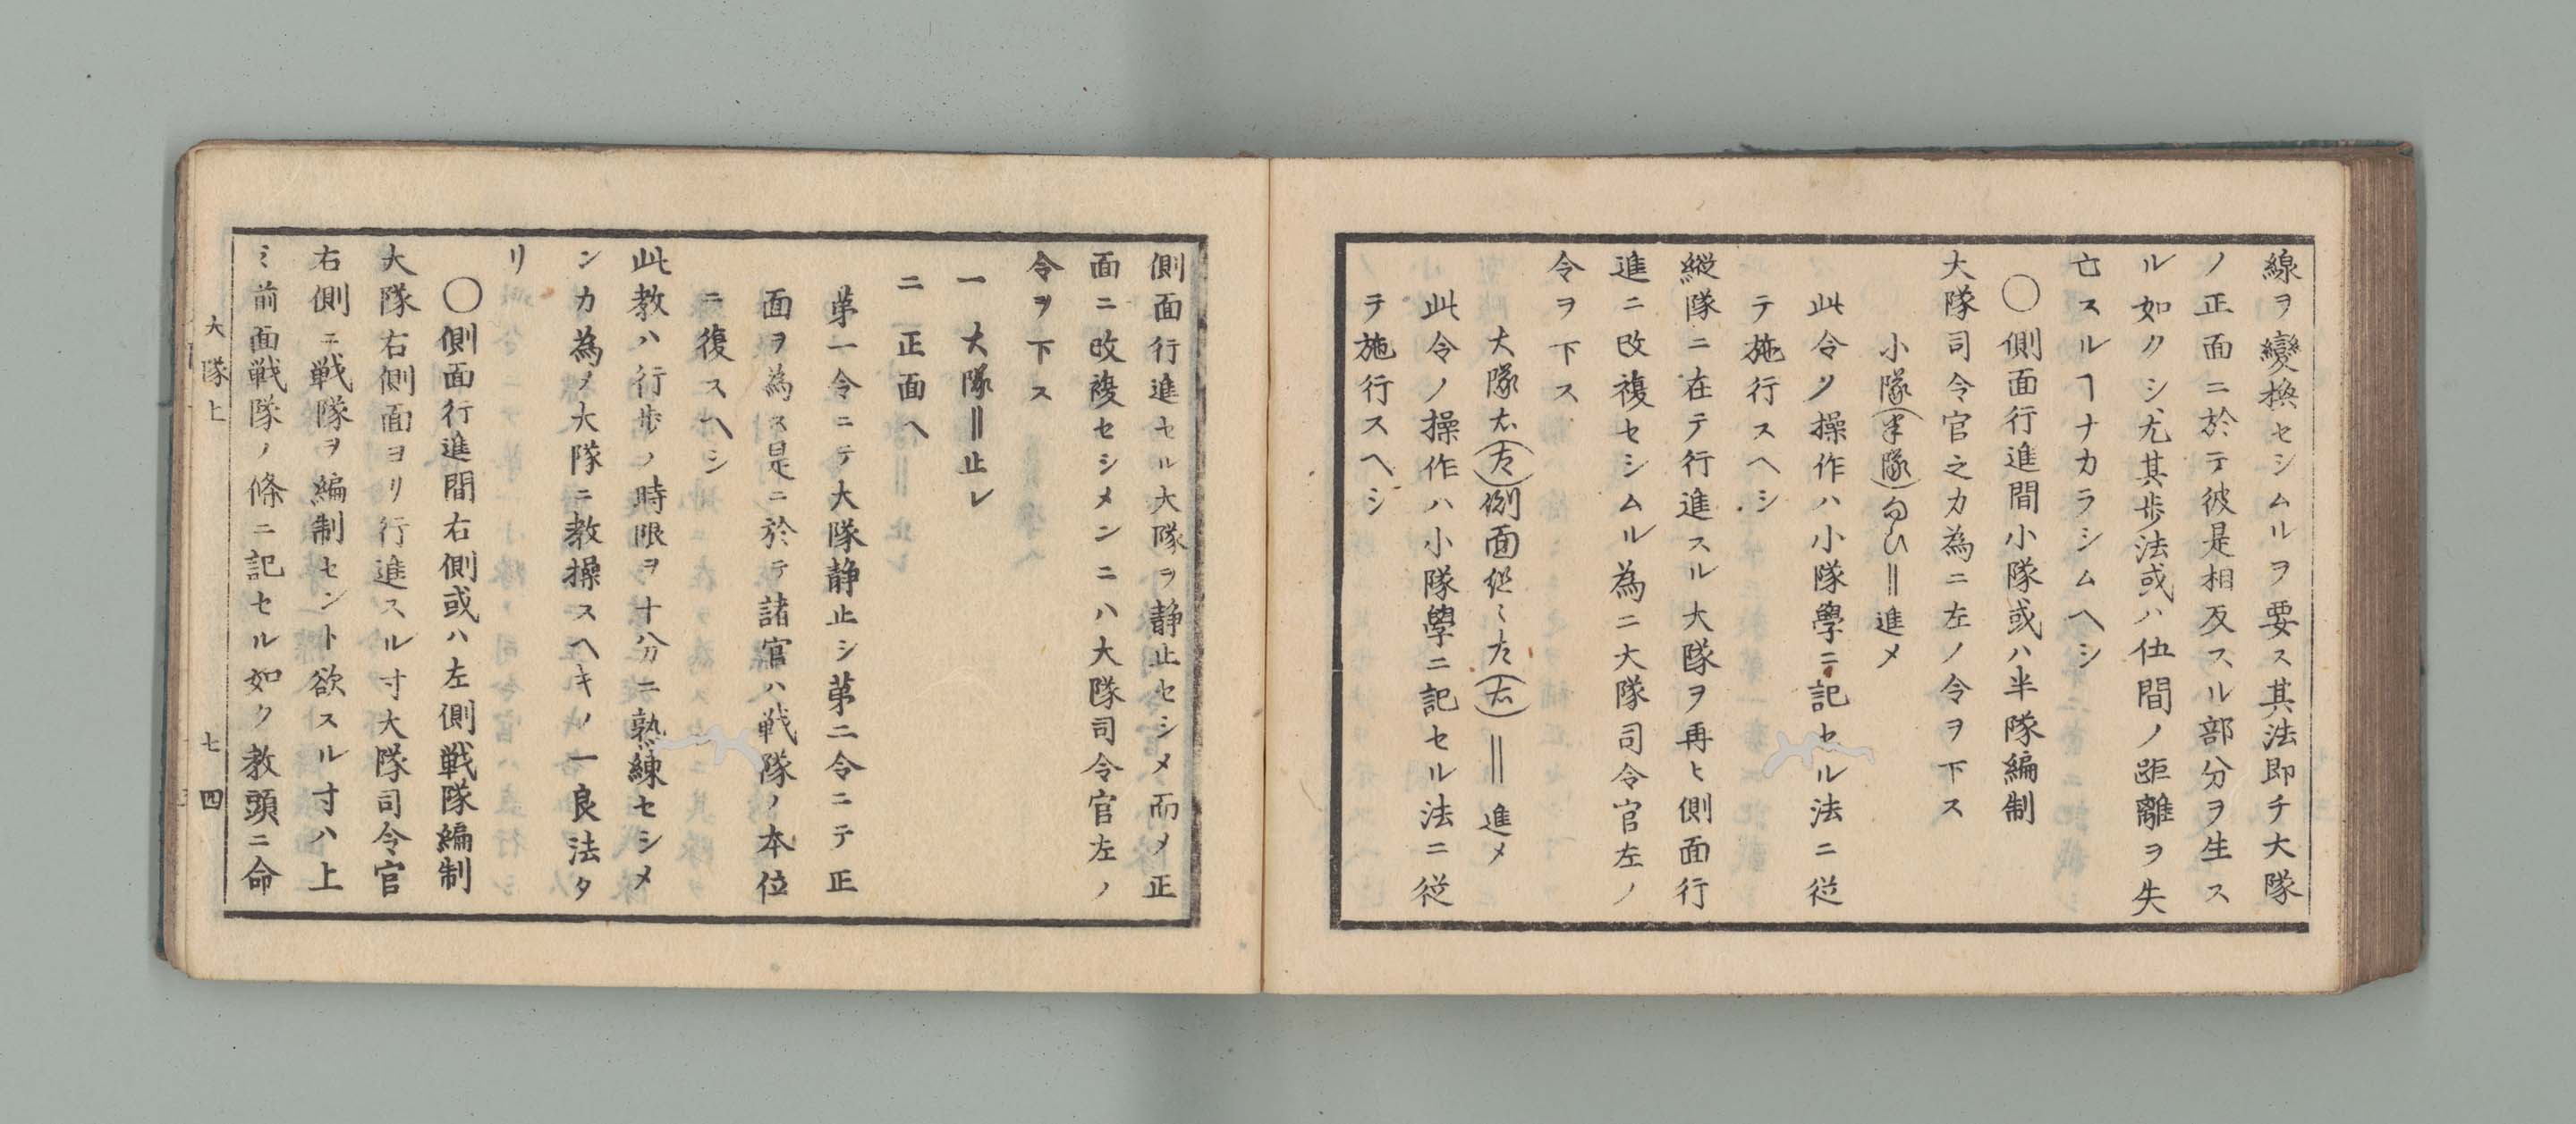 線ヲ變換セシムルヲ要ス其法即チ大隊
ノ正面ニ於テ彼是相反スル部分ヲ生ス
ル如クシ尤其歩法或ハ伍間ノ距離ヲ失
亡スルヿナカラシムヘシ
〇側面行進間小隊或ハ半隊編制
大隊司令官之カ為ニ左ノ令ヲ下ス
小隊(半隊)勾ひ‖進メ
此令ノ操作ハ小隊學ニ記セル法ニ從
テ施行スヘシ
縦隊ニ在テ行進スル大隊ヲ再ヒ側面行
進ニ改複セシムル為ニ大隊司令官左ノ
令ヲ下ス
大隊右(左)側面從ミ左(右)‖進メ
此令ノ操作ハ小隊學ニ記セル法ニ從
テ施行スヘシ
側面行進セル大隊ヲ静止セシメ而メ正
面ニ改複セシメンニハ大隊司令官左ノ
令ヲ下ス
一 大隊‖止レ
二 正面ヘ
苐一令ニテ大隊静止シ苐二令ニテ正
面ヲ為ス是ニ於テ諸官ハ戦隊ノ本位
ニ復スヘシ
此教ハ行歩ノ時限ヲ十分ニ熟練セシメ
ンカ為メ大隊ニ教操スヘキノ一良法タ
リ
〇側面行進間右側或ハ左側戦隊編制
大隊右側面ヨリ行進スル寸大隊司令官
右側ニ戦隊ヲ編制セント欲スル寸ハ上
ミ前面戦隊ノ條ニ記セル如ク教頭ニ命
大隊上 七四